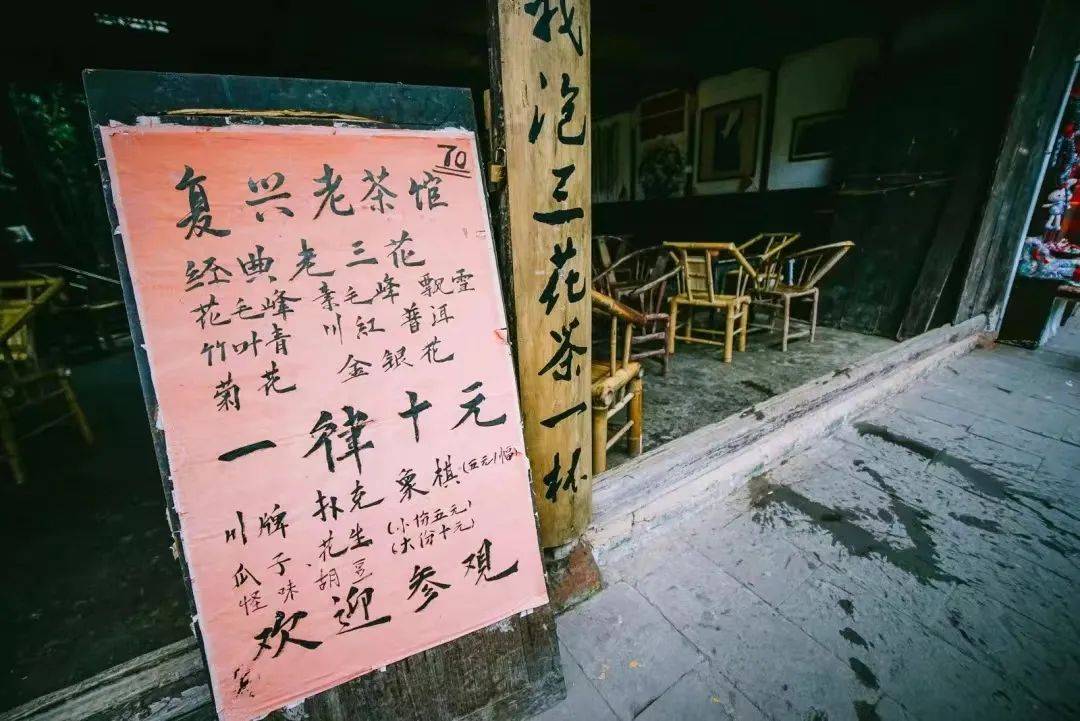 70
复兴老茶馆
经典老三花
花毛峰 素毛峰 飘雪
竹叶青 川红 普洱
菊花 金银花
一律十元
川牌 扑克 象棋(五元/幅)
瓜子 花生 (小份五元)
怪味胡豆 (大份十元)
欢迎参观
我泡三花茶一杯